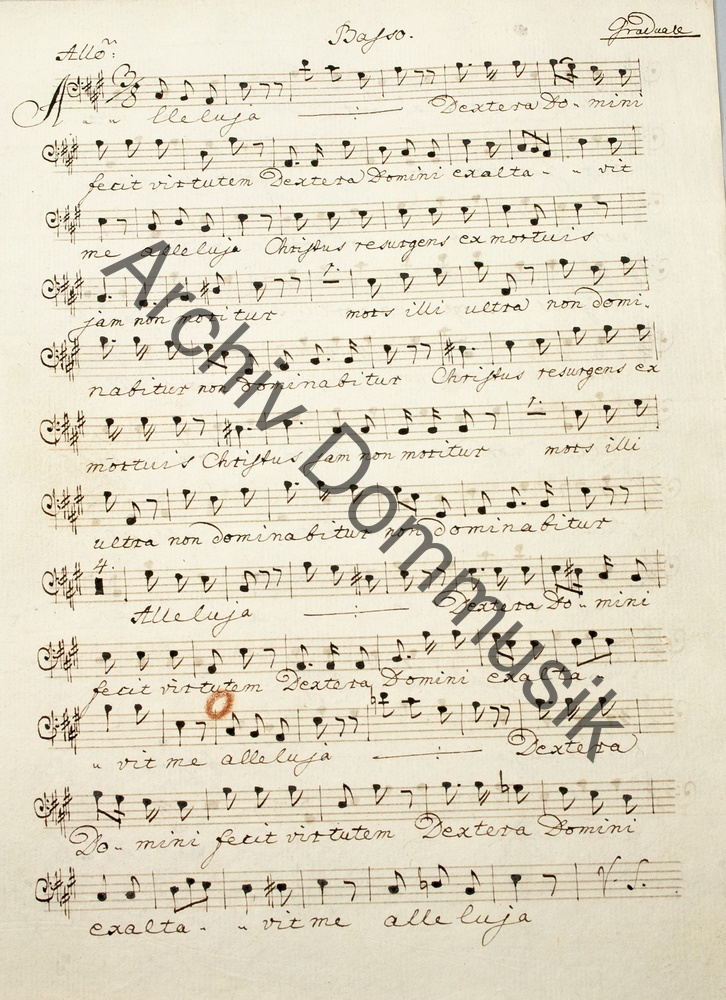 Basso.
Graduale
Allo:
Alleluja —:— Dextera Do - mini
fecit virtutem Dextera Domini exalta - - vit
me alleluja Christus resurgens ex mortuis
jam non moritur 1. mors illi ultra non domi-
nabitur non dominabitur Christus resurgens ex
mortuis Christus jam non moritur 1. mors illi
ultra non dominabitur non dominabitur
4. Alleluja —:— Dextera Do - mini
fecit virtutem Dextera Domini exalta
- vit me alleluja —:— Dextera
Do - mini fecit virtutem Dextera Domini
exalta - - vit me alleluja
V. S.
Archiv Dommusik